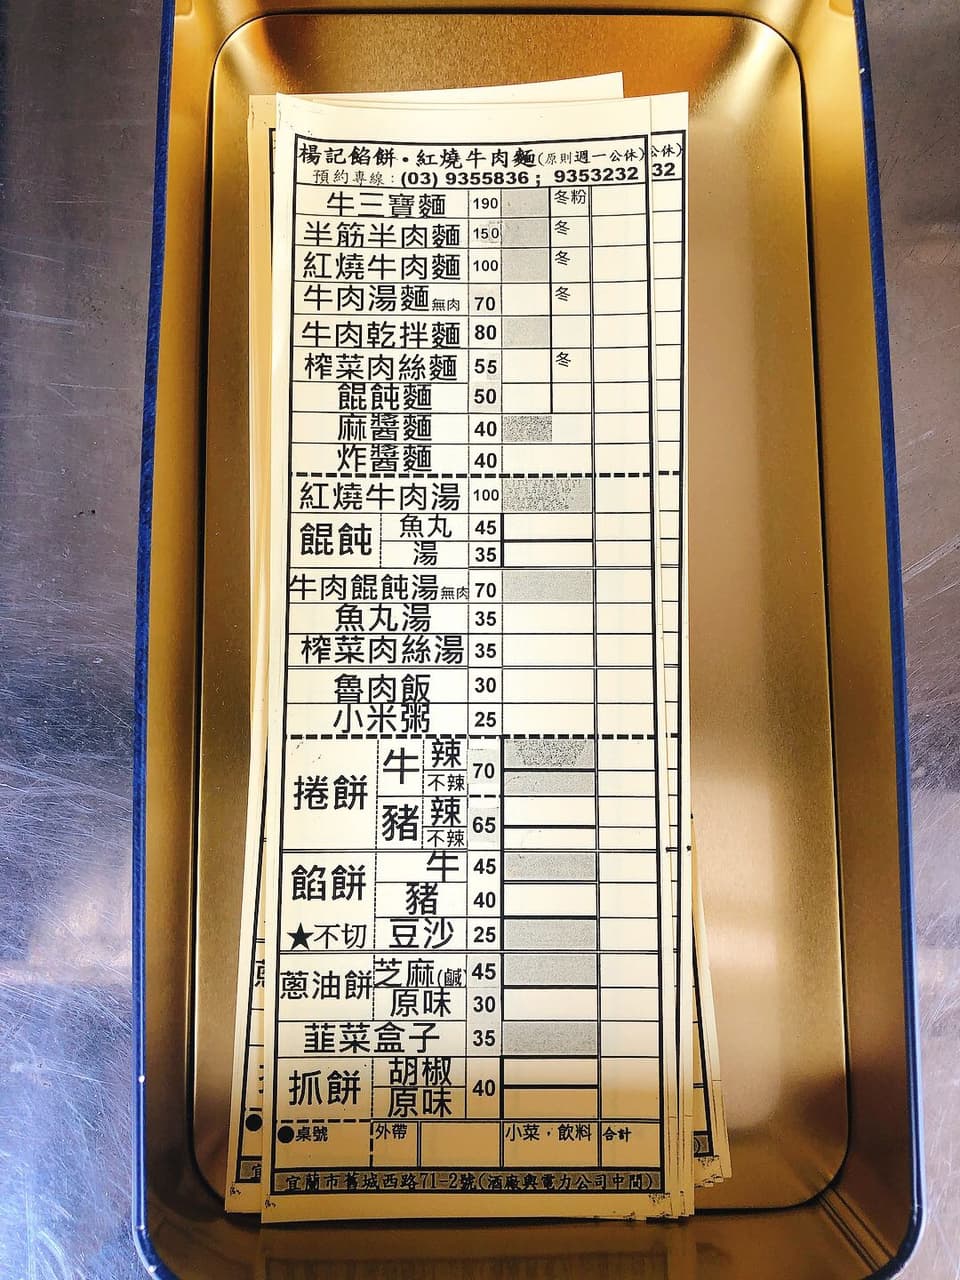 楊記餡餅·紅燒牛肉麵(原則週一公休)
預約專線：(03) 9355836； 9353232
牛三寶麵 190 冬粉
半筋半肉麵 150 冬
紅燒牛肉麵 100 冬
牛肉湯麵無肉 70 冬
牛肉乾拌麵 80
榨菜肉絲麵 55 冬
餛飩麵 50
麻醬麵 40
炸醬麵 40
紅燒牛肉湯 100
餛飩 魚丸 45
湯 35
牛肉餛飩湯無肉 70
魚丸湯 35
榨菜肉絲湯 35
魯肉飯 30
小米粥 25
捲餅 牛 辣 70
不辣
豬 辣 65
不辣
餡餅 牛 45
豬 40
★不切 豆沙 25
蔥油餅 芝麻(鹹) 45
原味 30
韮菜盒子 35
抓餅 胡椒 40
原味
●桌號 外帶 小菜，飲料 合計
宜蘭市舊城西路71-2號(酒廠與電力公司中間)
公休)
32